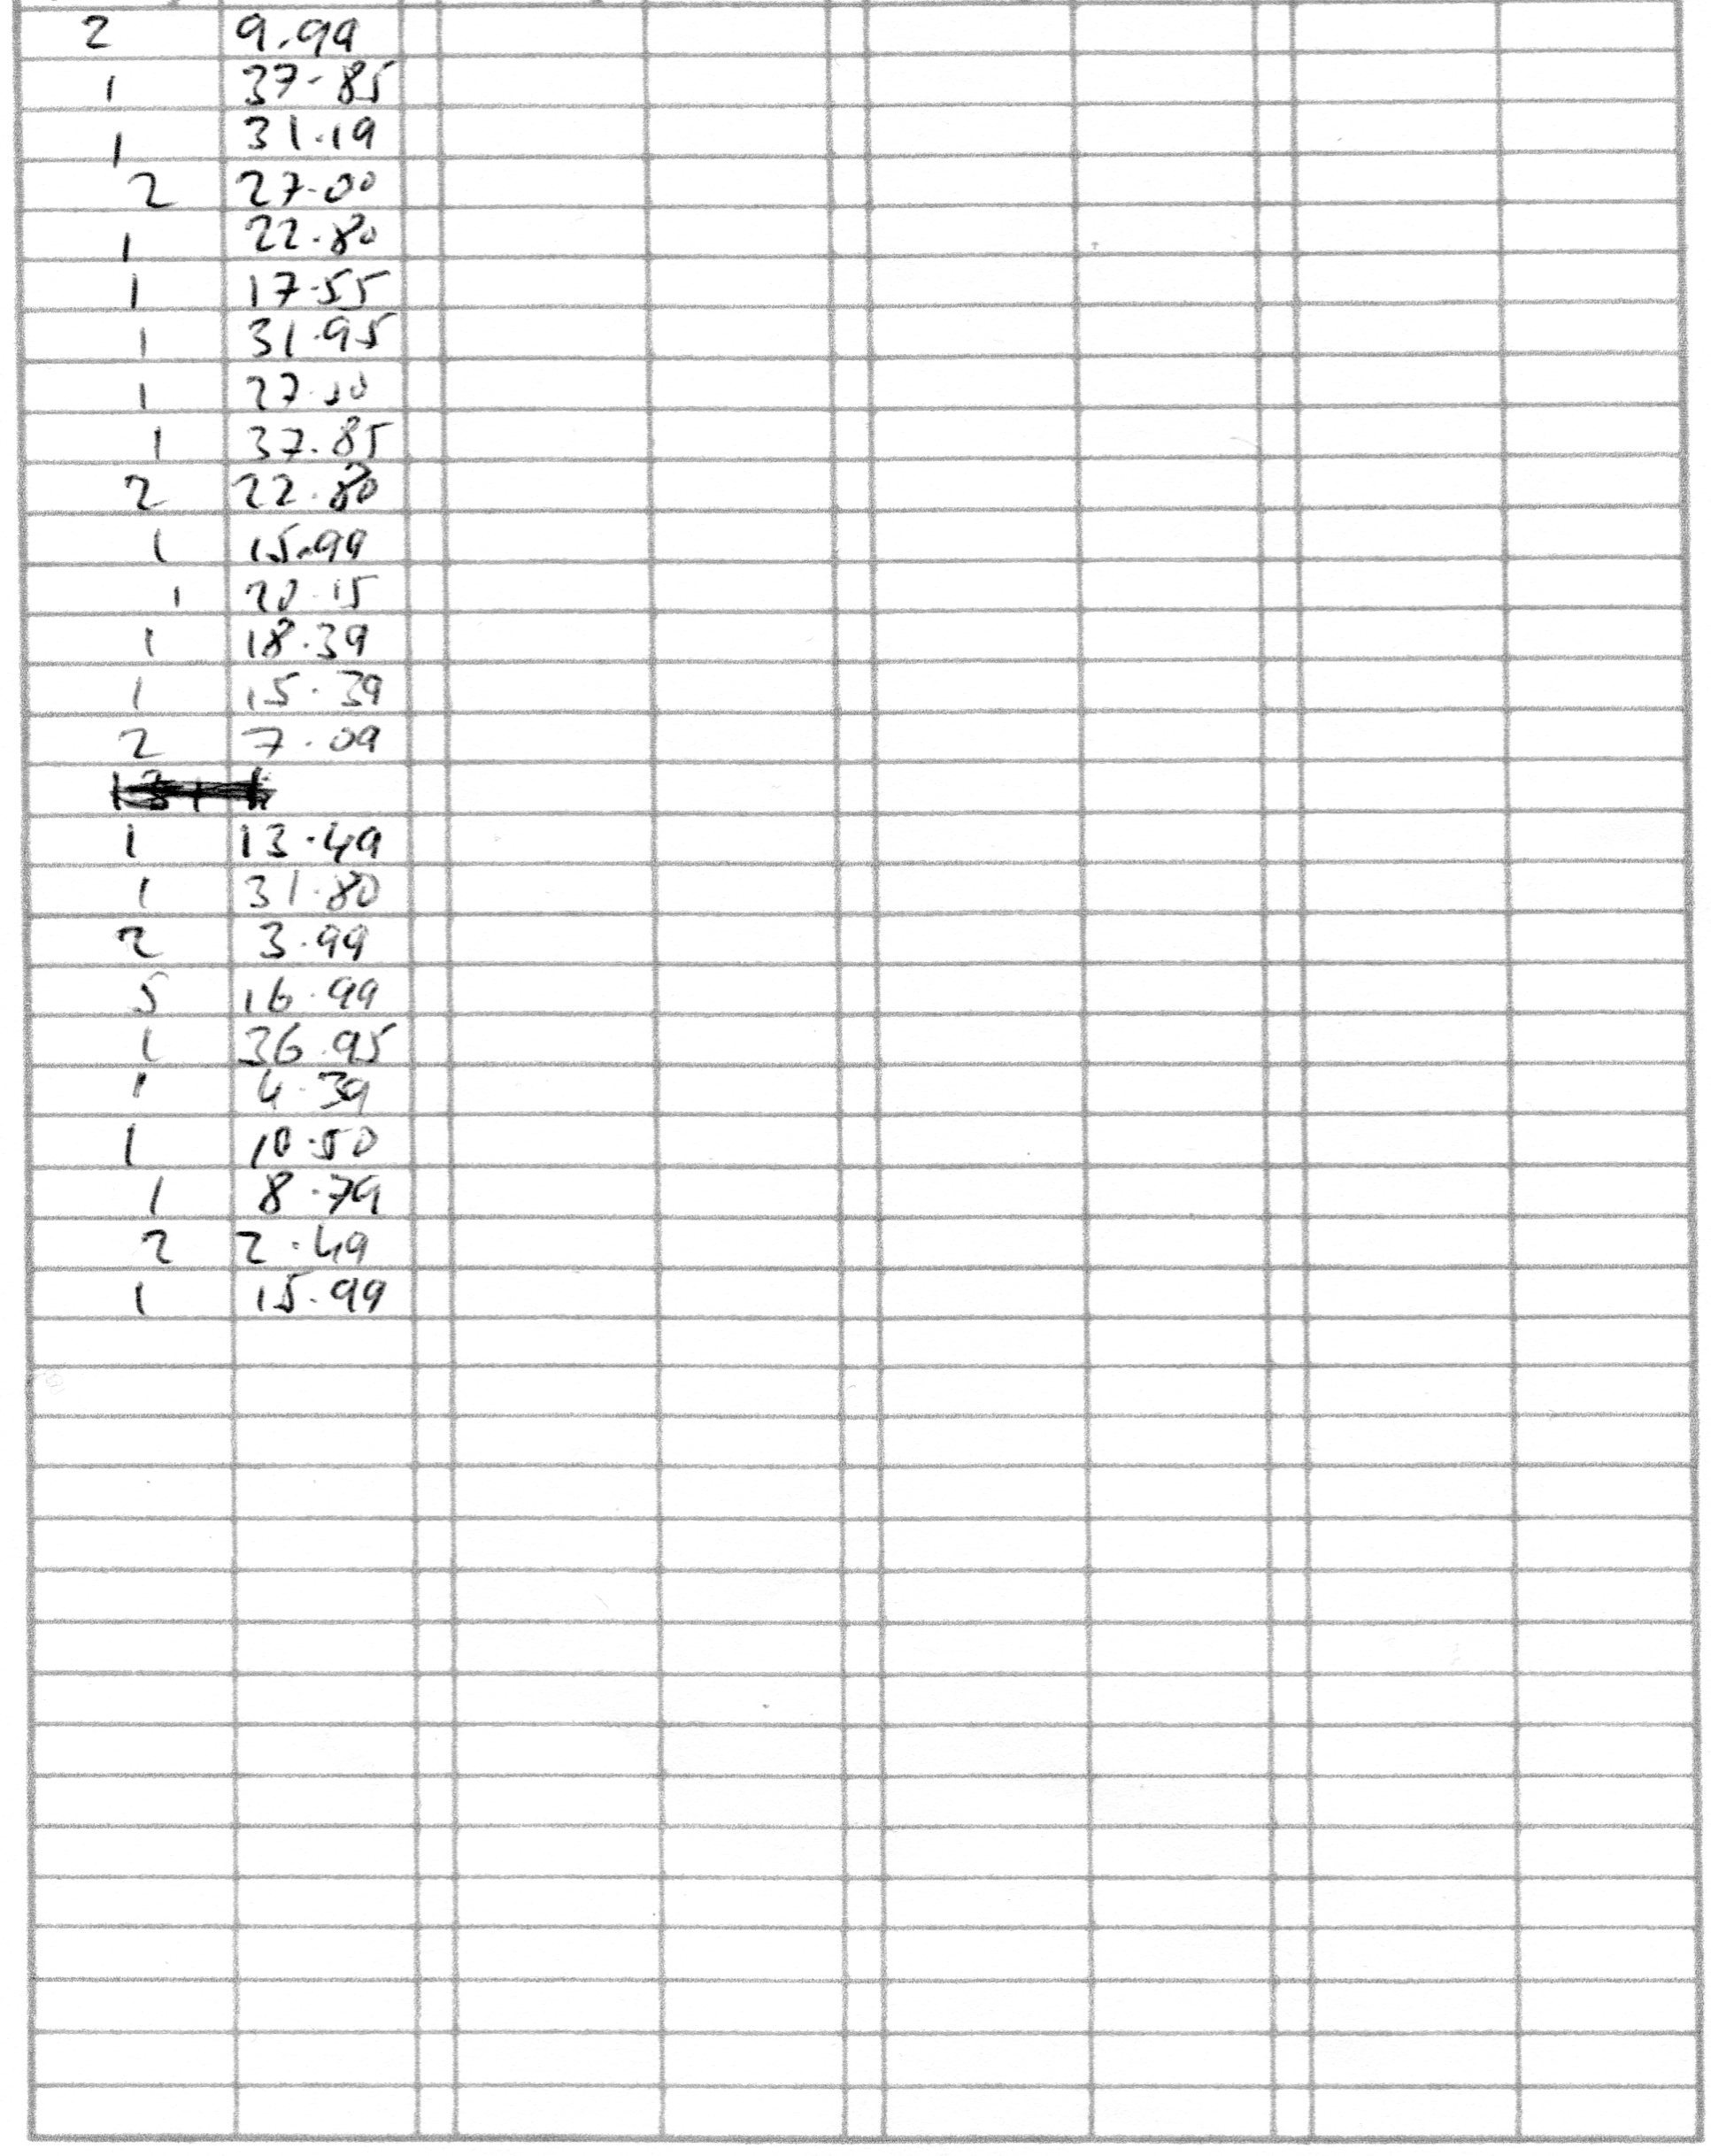 2 9.99
1 37.85
1 31.19
2 27.00
1 22.80
1 17.55
1 31.95
1 27.00
1 37.85
2 22.80
1 15.99
1 20.15
1 18.39
1 15.39
2 7.09
1 13.49
1 31.80
2 3.99
5 16.99
1 36.95
1 4.39
1 10.50
1 8.79
2 2.49
1 15.99